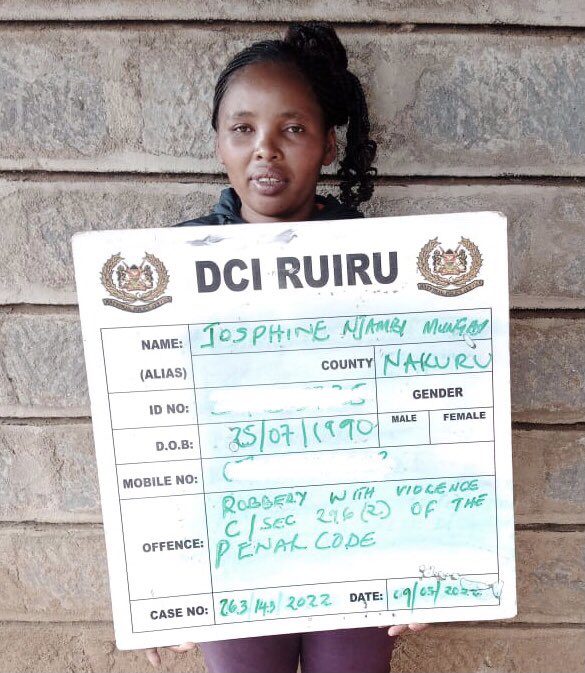 DCI RUIRU
NAME: JOSPHINE NJAMBI MUNGAI
(ALIAS) COUNTY NAKURU
ID NO: GENDER
MALE FEMALE
D.O.B: 25/07/1990
MOBILE NO:
ROBBERY WITH VIOLENCE
C/SEC 296(2) OF THE
OFFENCE: PENAL CODE
CASE NO: 263/143/2022 DATE: 09/05/2022